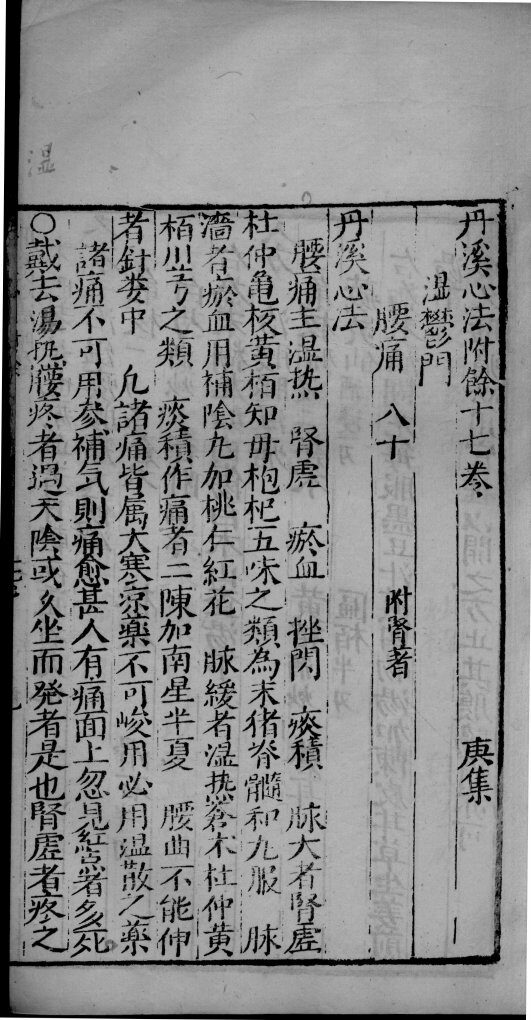 丹溪心法附餘十七巻　庚集
湿鬱門
腰痛　八十　附腎著
丹溪心法
腰痛主湿热　腎虚　瘀血　挫閃　痰積　脉大者腎虚
杜仲亀板黄栢知母枸杞五味之類為末猪脊髓和丸服　脉
濇者瘀血用補陰丸加桃仁紅花　脉緩者湿热蒼朮杜仲黄
栢川芎之類　痰積作痛者二陳加南星半夏　腰曲不能伸
者針委中　凡諸痛皆属火寒凉藥不可峻用必用温散之藥
諸痛不可用参補气則痛愈甚人有痛面上忽見紅点者多死
○戴云湯热腰疼者過天陰或久坐而発者是也腎虚者疼之